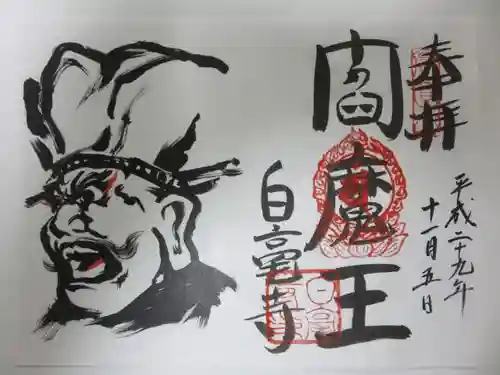 奉拝
平成二十九年
十一月五日
閻魔王
白毫寺